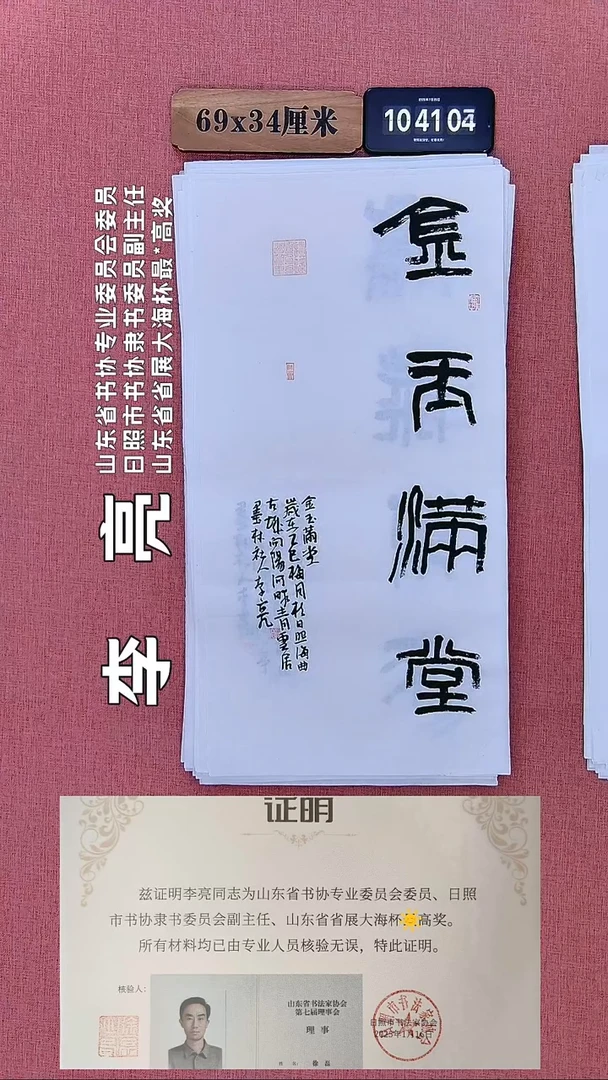 69x34厘米
10 41 04
金玉满堂
金玉满堂
岁在乙巳梅月于日照海曲
古城向阳河畔青云居
墨林社人李亮
山东省书协专业委员会委员
日照市书协隶书委员副主任
山东省省展大海杯最*高奖
李亮
证明
兹证明李亮同志为山东省书协专业委员会委员、日照
市书协隶书委员会副主任、山东省省展大海杯高奖。
所有材料均已由专业人员核验无误，特此证明。
核验人：
山东省书法家协会
第七届理事会
理 事
徐磊
日照市书法家协会
2025年1月16日